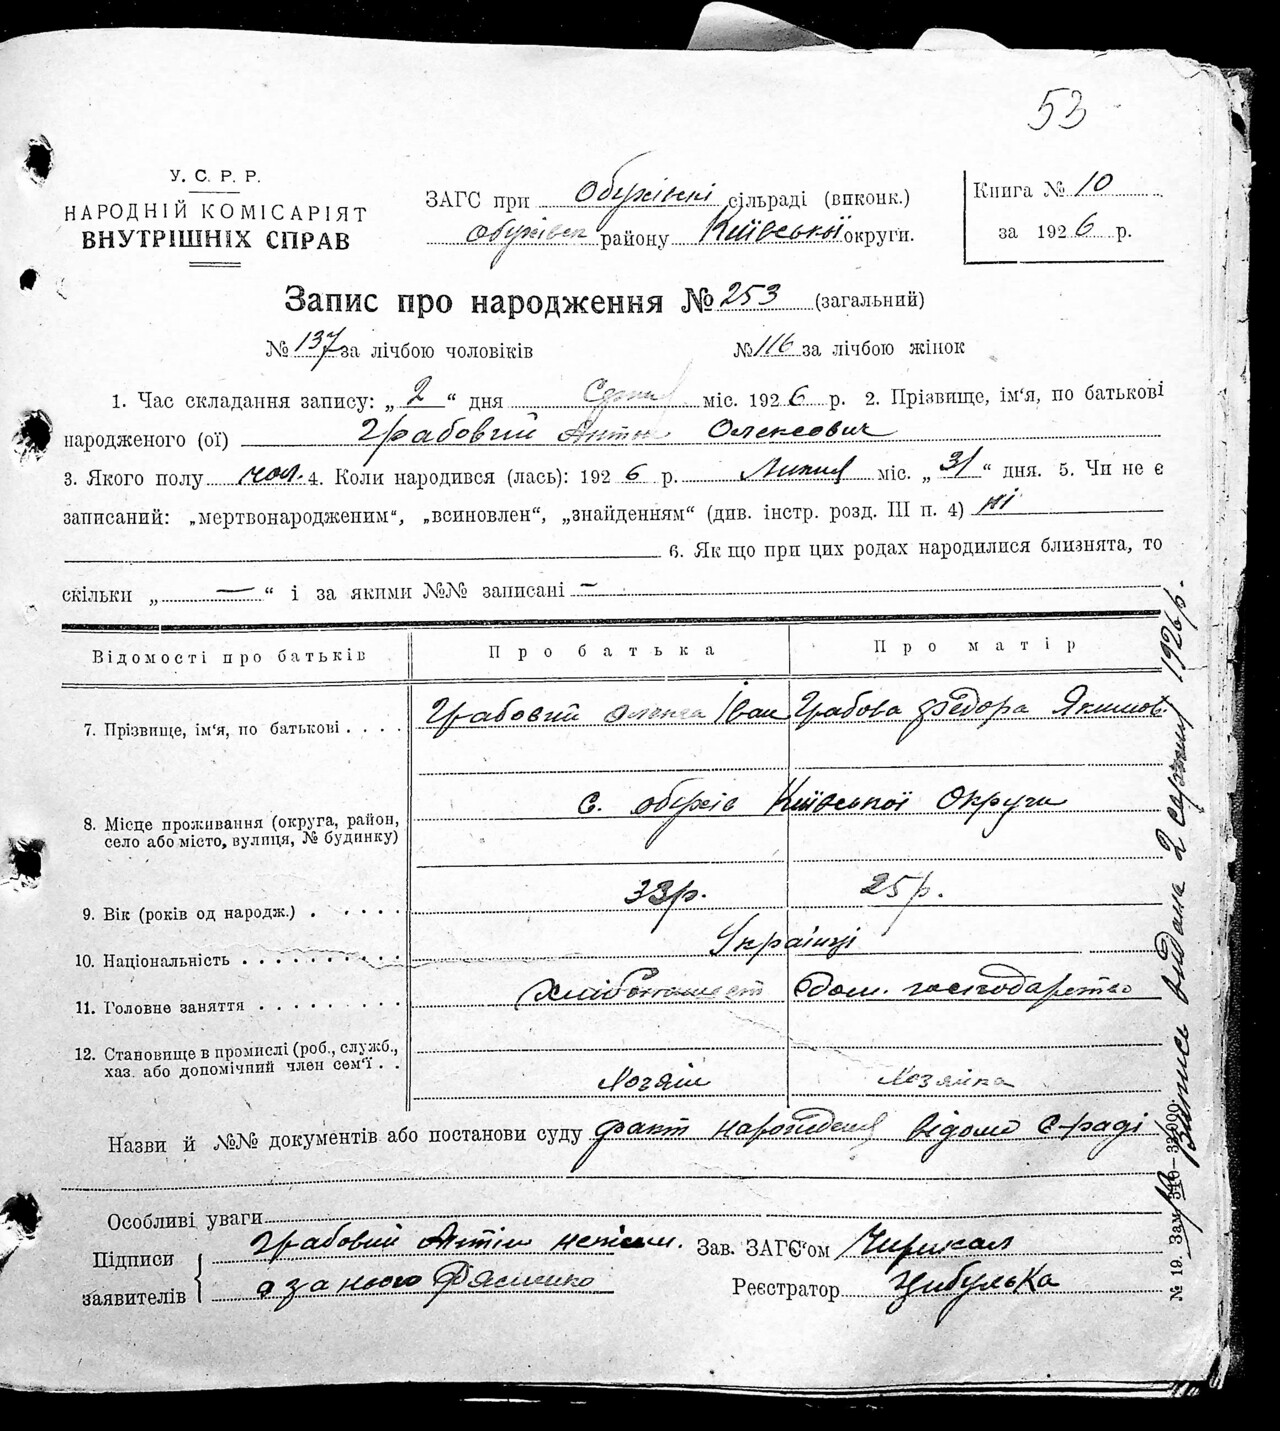 53
У. С. Р. Р.
НАРОДНІЙ КОМІСАРІЯТ
ВНУТРІШНІХ СПРАВ
ЗАГС при Обухівкі сільраді (виконк.)
Обухівськ району Київської округи.
Книга № 10
за 1926 р.
Запис про народження № 253 (загальний)
№ 137 за лічбою чоловіків № 116 за лічбою жінок
1. Час складання запису: „ 2 “ дня міс. 1926 р. 2. Прізвище, ім'я, по батькові
народженого (ої) Грабовий Антон Олексович
3. Якого полу чол. 4. Коли народився (лась): 1926 р. Липня міс. „ 31 “ дня. 5. Чи не є
записаний: „мертвонародженим“, „всиновлен“, „знайденням“ (див. інстр. розд. III п. 4) ні
6. Як що при цих родах народилися близнята, то
скільки „ — “ і за якими №№ записані —
Відомості про батьків Про батька Про матір
7. Прізвище, ім'я, по батькові . . . . Грабовий Олекса Іван Грабова Федора Якимов.
8. Місце проживання (округа, район, село або місто, вулиця, № будинку) с. Обухів Київської Округи
9. Вік (років од народж.) . . . . . 33р. 25р.
10. Національність . . . . . . . . . . Українці
11. Головне заняття . . . . . . . Хлібопашест Дом. господарство
12. Становище в промислі (роб., служб., хаз. або допомічний член сем'ї . . Хозяїн Хозяйка
Назви й №№ документів або постанови суду факт народження відомо с-раді
Особливі уваги
Підписи заявителів Грабовий Антін неписм.
а за нього
Зав. ЗАГС'ом
Реєстратор Цибулька
№ 19. Зам. 310—33.000.
Выпись видана 2 серпня 1926р.